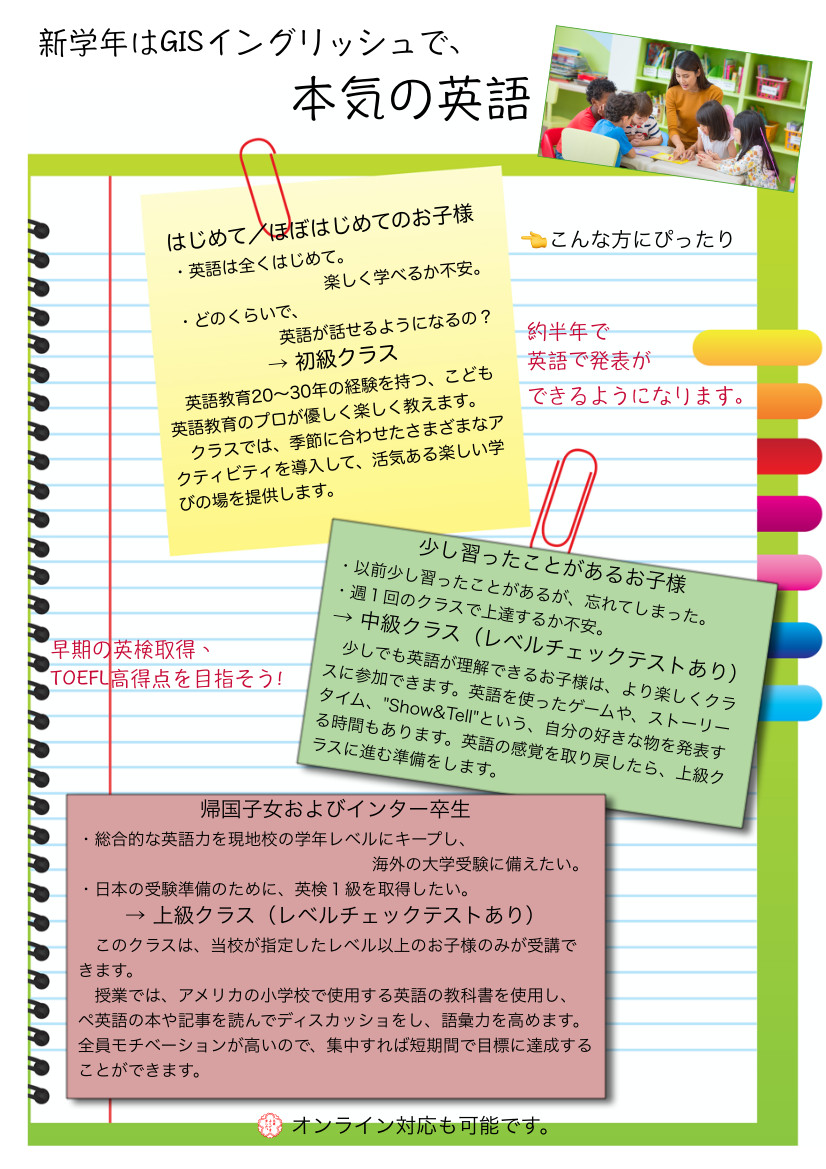 新学年はGISイングリッシュで、
本気の英語
はじめて／ほぼはじめてのお子様
・英語は全くはじめて。
楽しく学べるか不安。
・どのくらいで、
英語が話せるようになるの？
→ 初級クラス
英語教育20〜30年の経験を持つ、こども
英語教育のプロが優しく楽しく教えます。
クラスでは、季節に合わせたさまざまなア
クティビティを導入して、活気ある楽しい学
びの場を提供します。
👈こんな方にぴったり
約半年で
英語で発表が
できるようになります。
少し習ったことがあるお子様
・以前少し習ったことがあるが、忘れてしまった。
・週１回のクラスで上達するか不安。
→ 中級クラス（レベルチェックテストあり）
少しでも英語が理解できるお子様は、より楽しくクラ
スに参加できます。英語を使ったゲームや、ストーリー
タイム、"Show&Tell"という、自分の好きな物を発表す
る時間もあります。英語の感覚を取り戻したら、上級ク
ラスに進む準備をします。
早期の英検取得、
TOEFL高得点を目指そう!
帰国子女およびインター卒生
・総合的な英語力を現地校の学年レベルにキープし、
海外の大学受験に備えたい。
・日本の受験準備のために、英検１級を取得したい。
→ 上級クラス（レベルチェックテストあり）
このクラスは、当校が指定したレベル以上のお子様のみが受講で
きます。
授業では、アメリカの小学校で使用する英語の教科書を使用し、
ペ英語の本や記事を読んでディスカッショをし、語彙力を高めます。
全員モチベーションが高いので、集中すれば短期間で目標に達成する
ことができます。
オンライン対応も可能です。